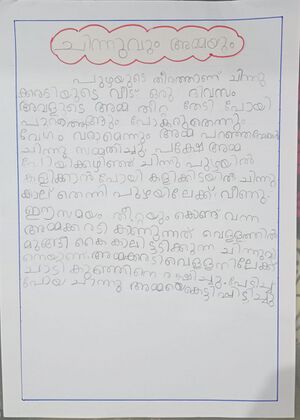 ചിന്നുവും അമ്മയും
പുഴയുടെ തീരത്താണ് ചിന്നു
കരടിയുടെ വീട് ഒരു ദിവസം
അവളുടെ അമ്മ തീറ്റ തേടി പോയി
പുറത്തെങ്ങും പോകരുതെന്നും
വേഗം വരാമെന്നും അമ്മ പറഞ്ഞപ്പോൾ
ചിന്നു സമ്മതിച്ചു പക്ഷേ അമ്മ
പോയികഴിഞ്ഞ് ചിന്നു പുഴയിൽ
കളിക്കാൻ പോയി കളിക്കിടയിൽ ചിന്നു
കാല് തെന്നി പുഴയിലേക്ക് വീണു.
ഈ സമയം തീറ്റയും കൊണ്ട് വന്ന
അമ്മക്കരടി കാണുന്നത് വെള്ളത്തിൽ
മുങ്ങി കൈകാലിട്ടടിക്കുന്ന ചിന്നുവി
നെയാണ് അമ്മക്കരടി വെള്ളത്തിലേക്ക്
ചാടി കുഞ്ഞിനെ രക്ഷിച്ചു. പേടിച്ചു
പോയ ചിന്നു അമ്മയെ കെട്ടിപ്പിടിച്ചു